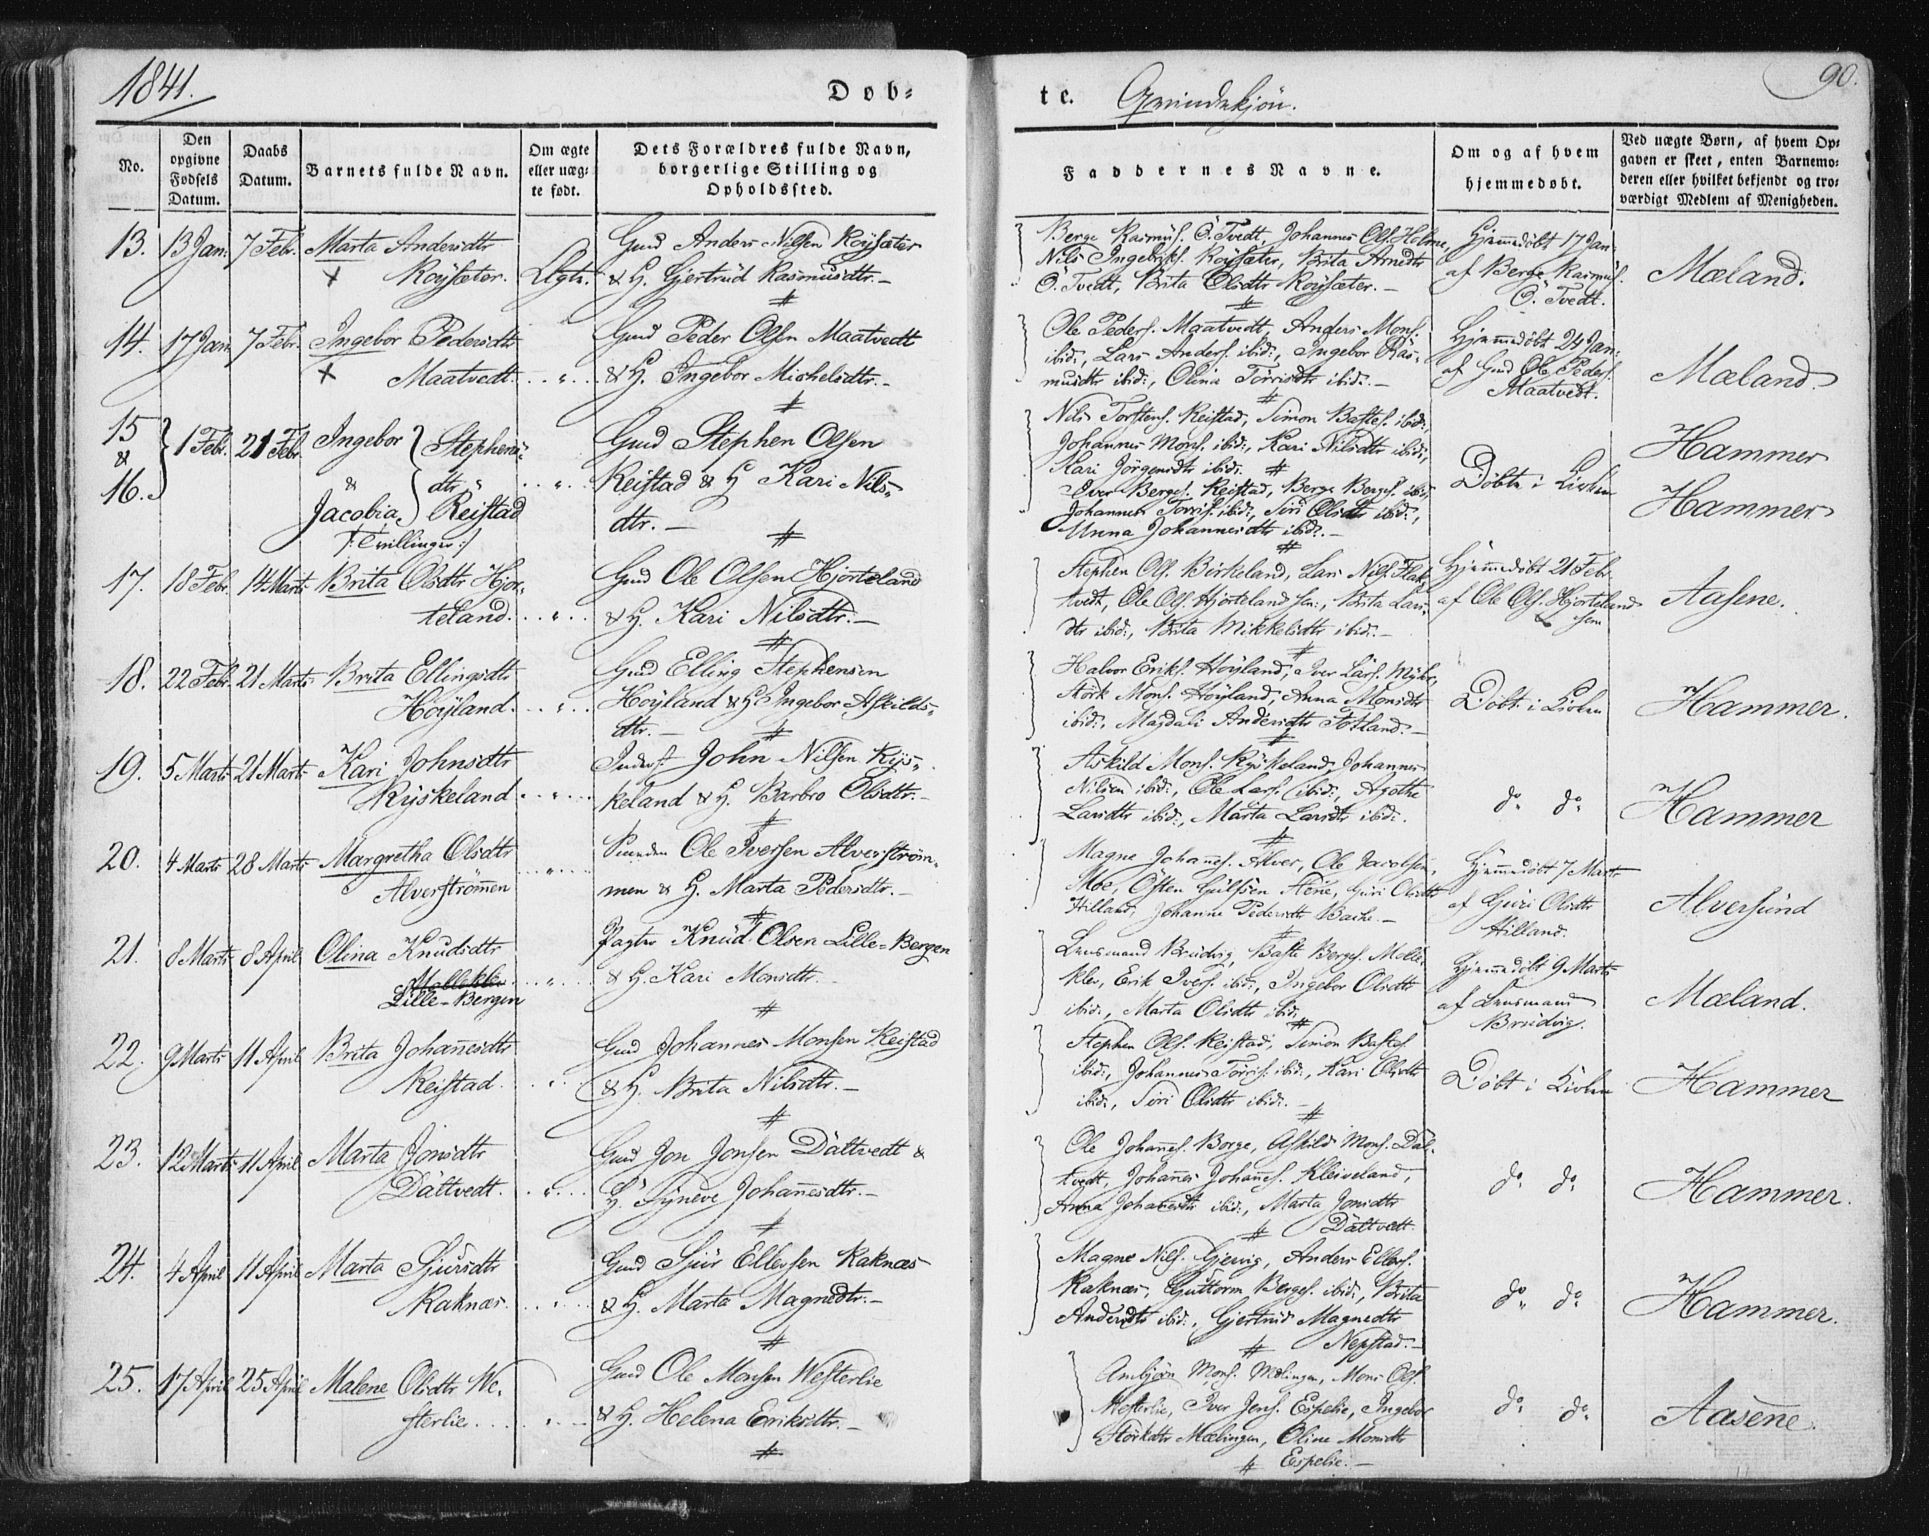 1841.
Døb-
te. Qvindekjön.
90.
No.
Den opgivne Fødsels Datum.
Daabs Datum.
Barnets fulde Navn.
Om ægte eller uægte født.
Dets Forældres fulde Navn, borgerlige Stilling og Opholdssted.
Faddernes Navne.
Om og af hvem hjemmedøbt.
Ved uægte Børn, af hvem Opgaven er skeet, enten Barnemoderen eller hvilket bekjendt og troværdigt Medlem af Menigheden.
13. 13 Jan. 7 Febr. Marta Andersdtr
Röysæter. Ægte.
Gmd Anders Nilsen Röysæter
& H. Gjertrud Rasmusdtr.
Berge Rasmus. Ö. Tvedt, Johannes Ols. Holme,
Nils Ingebrigts. Röysæter, Brita Arnedtr
Ö. Tvedt, Brita Olsdtr Röysæter.
Hjemmedöbt 17 Jan.
af Berge Rasmus.
Ö. Tvedt.
Mæland.
14. 17 Jan. 7 Febr. Ingebor Pedersdtr
Maatvedt.
Gmd Peder Olsen Maatvedt
& H. Ingebor Michelsdtr.
Ole Peders. Maatvedt, Anders Mons.
ibid:, Lars Anders. ibid:, Ingebor Ras-
musdtr ibid:, Olina Torrisdtr ibid:.
Hjemmedöbt 24 Jan.
af Gmd Ole Peders.
Maatvedt.
Mæland
15 & 16. 1 Febr. 21 Febr. Ingebor & Jacobia Stephens-
dtr Reistad
/: Tvillinger :/
Gmd Stephen Olsen
Reistad & H Kari Nils-
dtr.
Nils Torstens. Reistad, Simon Bastes. ibid:,
Johannes Mons. ibid:, Kari Nilsdtr ibid:,
Kari Jörgensdtr ibid:.
Iver Berges. Reistad, Berge Berges. ibid:
Johannes Torris. ibid:, Siri Olsdtr ibid:,
Anna Johannesdtr ibid:.
Döbte i Kirken
Hammer
Hammer
17. 18 Febr. 14 Marts Brita Olsdtr Hjor-
teland.
Gmd Ole Olsen Hjorteland
& H. Kari Nilsdtr.
Stephen Ols. Birkeland, Lars Nils. Flak-
tvedt, Ole Ols. Hjorteland sen:, Brita Lars-
dtr ibid:, Brita Mikkelsdtr ibid:.
Hjemmedöbt 21 Febr.
af Ole Ols. Hjorteland
sen
Aasene.
18. 22 Febr. 21 Marts Brita Ellingsdtr
Höyland.
Gmd Elling Stephensen
Höyland & H Ingebor Askilds-
dtr.
Halvor Eriks. Höyland, Iver Lars. Myhr,
Störk Mons. Höyland, Anna Monsdtr
ibid:, Magdali Andersdtr Totland.
Döbt i Kirken
Hammer.
19. 5 Marts 21 Marts Kari Johnsdtr
Ryskeland
Inderst John Nilsen Rys-
keland & H. Barbro Olsdtr.
Askild Mons. Ryskeland, Johannes
Nilsen ibid:, Ole Lars. ibid:, Agathe
Larsdtr ibid:, Marta Larsdtr ibid:.
do do
Hammer
20. 4 Marts 28 Marts Margretha Olsdtr
Alverströmen
Ole Iversen Alverström-
men & H. Marta Pedersdtr.
Magne Johanes. Alver, Ole Jacobsen,
Moe, Östen Gulsen, Guri Olsdtr
Hilland, Johanne Pedersdtr Bache.
Hjemmedöbt 7 Marts
af Guri Olsdtr
Hilland.
Alversund
21. 8 Marts 8 April Olina Knudsdtr
Lille-Bergen
Knud Olsen Lille-Bergen
& H Kari Monsdtr.
Lensmand Brudvig, Baste Berges. Molle-
klev, Erik Ivers. ibid:, Ingebor Olsdtr
ibid:, Marta Olsdtr ibid.
Hjemmedöbt 9 Marts
af Lensmand
Brudvig.
Mæland.
22. 9 Marts 11 April Brita Johanesdtr
Reistad.
Gmd Johannes Monsen Reistad
& H. Brita Nilsdtr.
Stephen Ols. Reistad, Simon Bastes.
ibid:, Johannes Torris. ibid:, Kari Olsdtr
ibid:, Siri Olsdtr ibid:.
Döbt i Kirken
Hammer
23. 12 Marts 11 April Marta Jonsdtr
Daltvedt.
Gmd Jon Jonsen Daltvedt &
H. Syneve Johanesdtr.
Ole Johanes. Borge, Askild Mons. Dal-
tvedt, Johanes Johanes. Kleiveland,
Anna Johanesdtr ibid:, Marta Jonsdtr
Daltvedt.
do do
Hammer.
24. 4 April 11 April Marta Sjursdtr
Raknæs.
Gmd Sjur Ellevsen Raknæs
& H. Marta Magnedtr.
Magne Nils. Gjervig, Anders Ellevs.
Raknæs, Guttorm Berges. ibid:, Brita
Andersdtr ibid:, Gjertrud Magnedtr
Nepstad.
do do
Hammer.
25. 17 April 25 April Malene Olsdtr We-
sterlie.
Gmd Ole Monsen Westerlie
& H. Helena Eriksdtr.
Ambjörn Mons. Mælingen, Mons Ols.
Westerlie, Iver Jens. Espelie, Ingebor
Störkdtr Mælingen, Oline Monsdtr
Espelie.
do do
Aasene